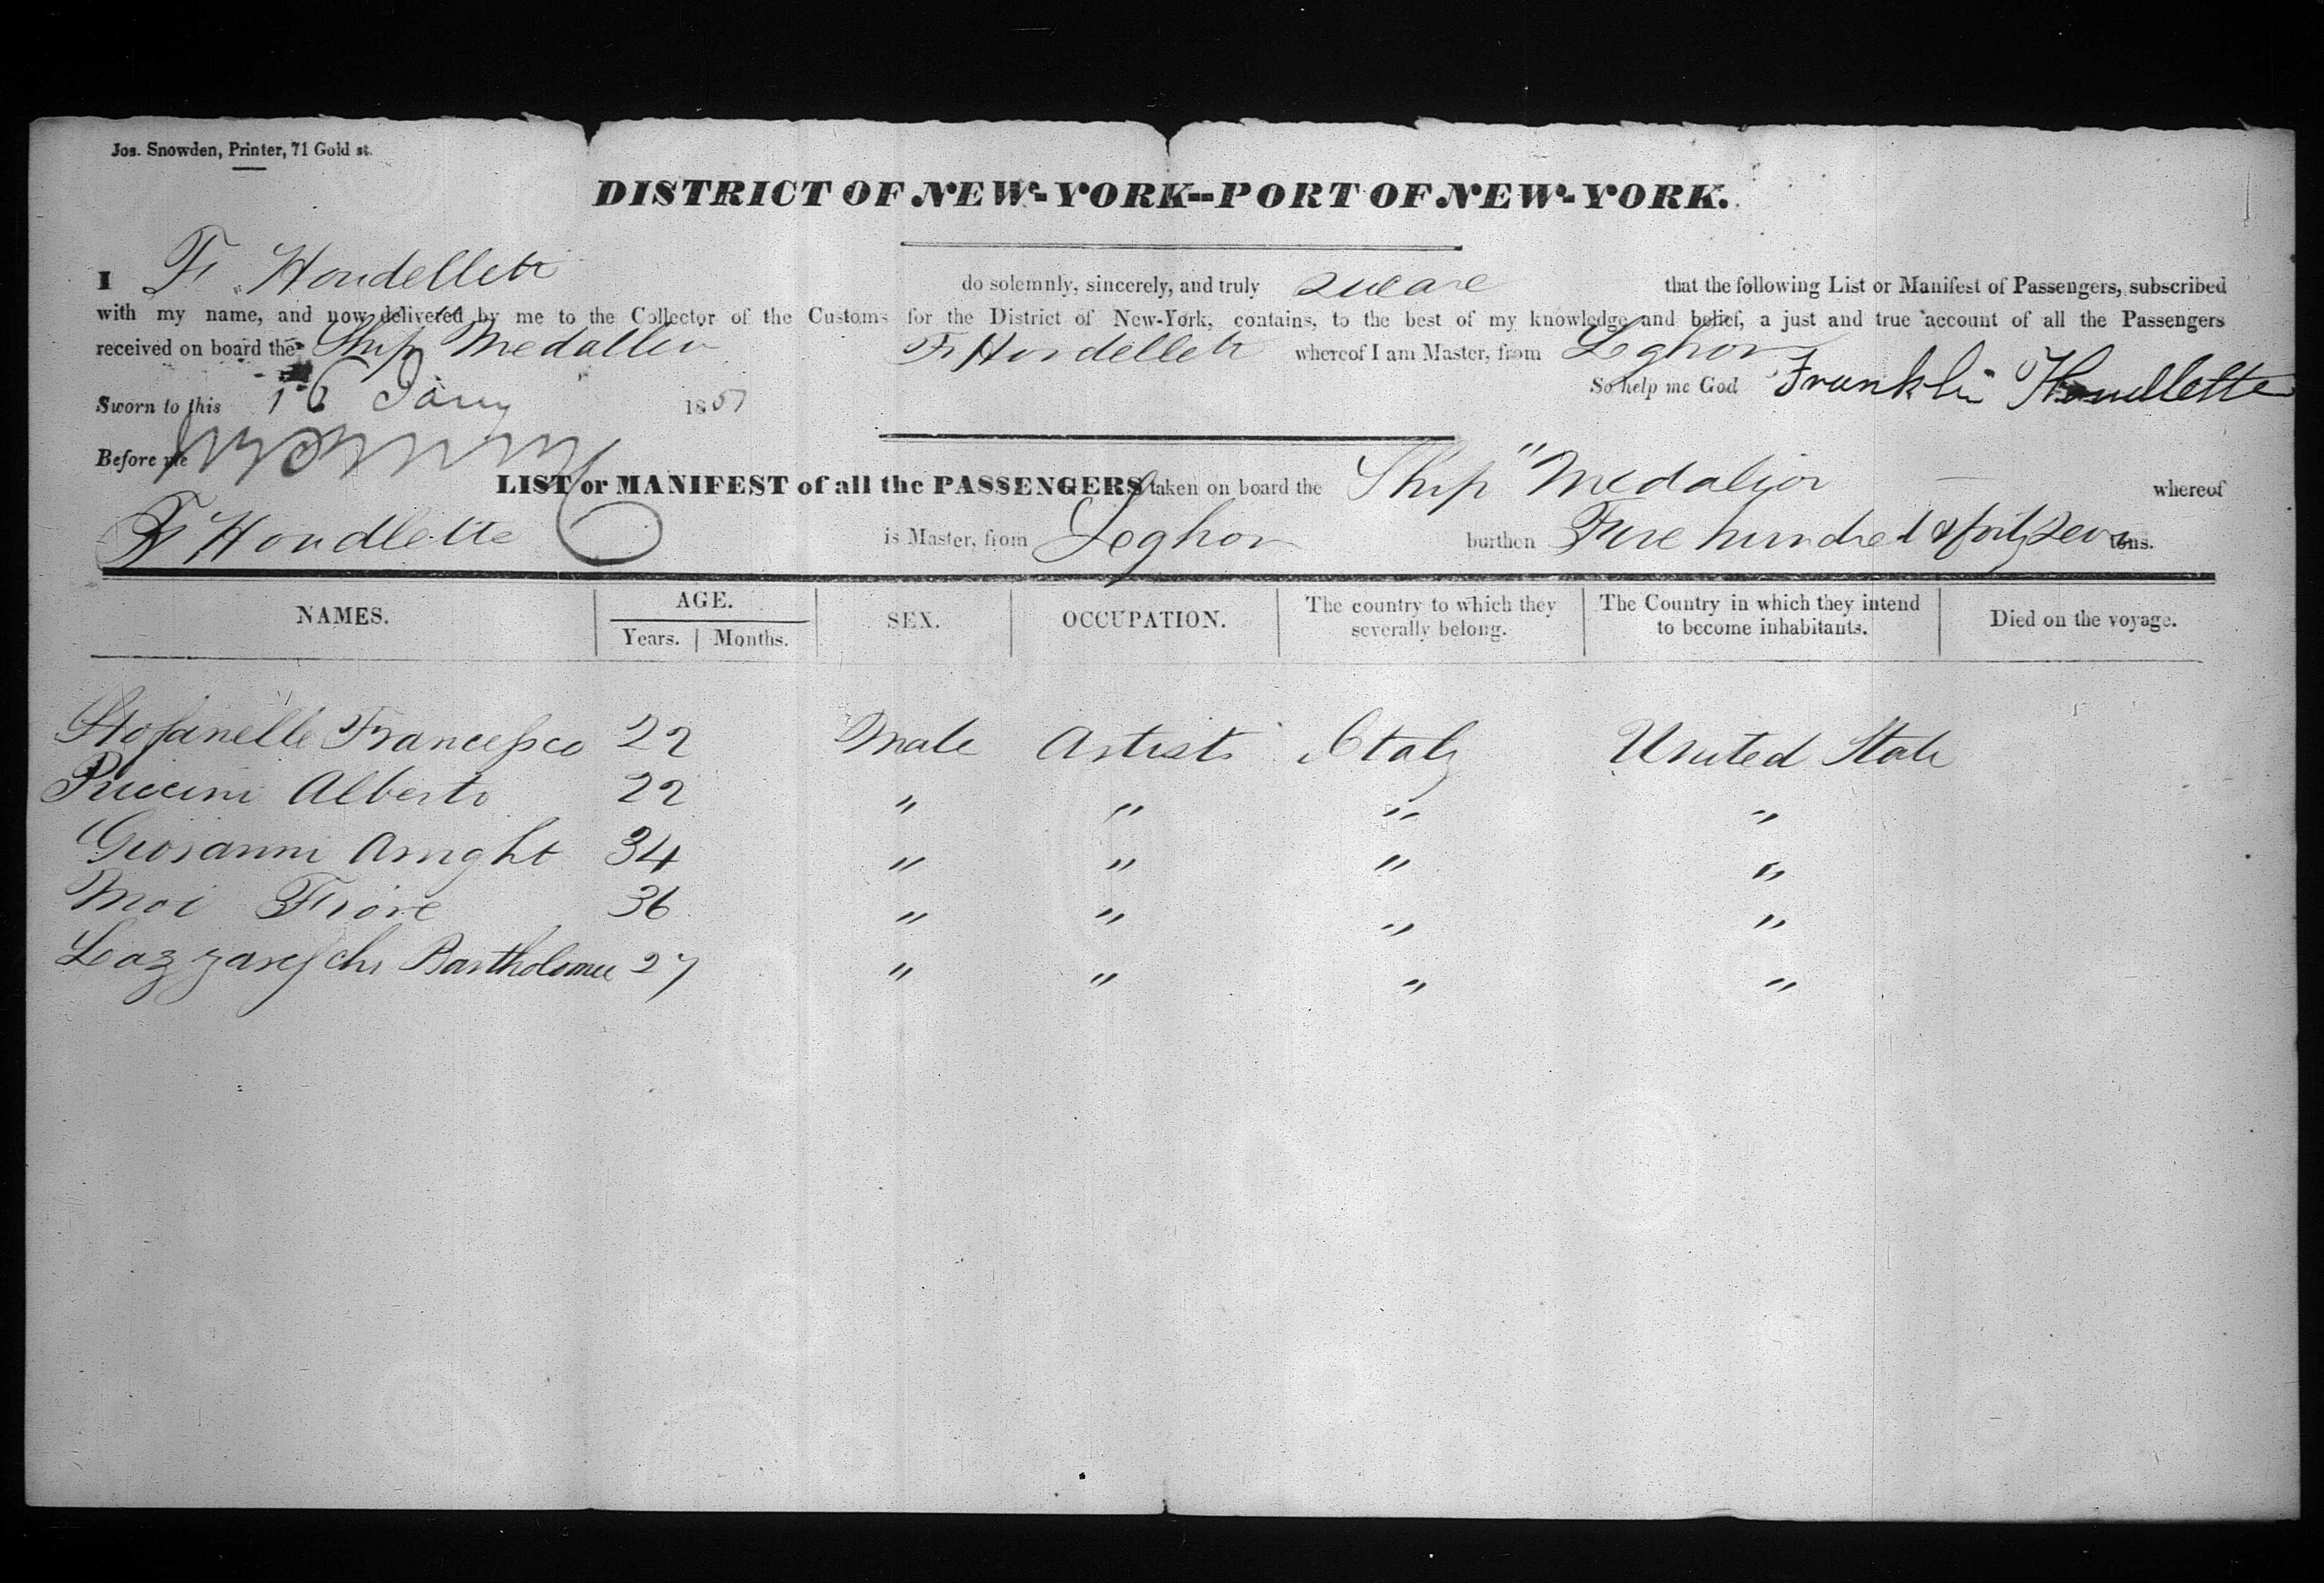 Jos. Snowden, Printer, 71 Gold st.
DISTRICT OF NEW-YORK--PORT OF NEW-YORK.
I F. Houdlette do solemnly, sincerely, and truly swear that the following List or Manifest of Passengers, subscribed
with my name, and now delivered by me to the Collector of the Customs for the District of New-York, contains, to the best of my knowledge and belief, a just and true account of all the Passengers
received on board the Ship Medallion F Houdlette whereof I am Master, from Leghorn
So help me God Franklin Houdlette
Sworn to this 16 Jany 1851
Before me
LIST or MANIFEST of all the PASSENGERS taken on board the Ship "Medalion — whereof
F Houdlette is Master, from Leghorn burthen Five hundred & forty seven tons.
NAMES. AGE. SEX. OCCUPATION. The country to which they severally belong. The Country in which they intend to become inhabitants. Died on the voyage.
Years. Months.
Stofanelle Francesco 22 Male Artists Italy United State
Puccini Alberto 22 " " " "
Giovanni 34 " " " "
Moi Fiore 36 " " " "
Lazzareschi Bartholomee 27 " " " "